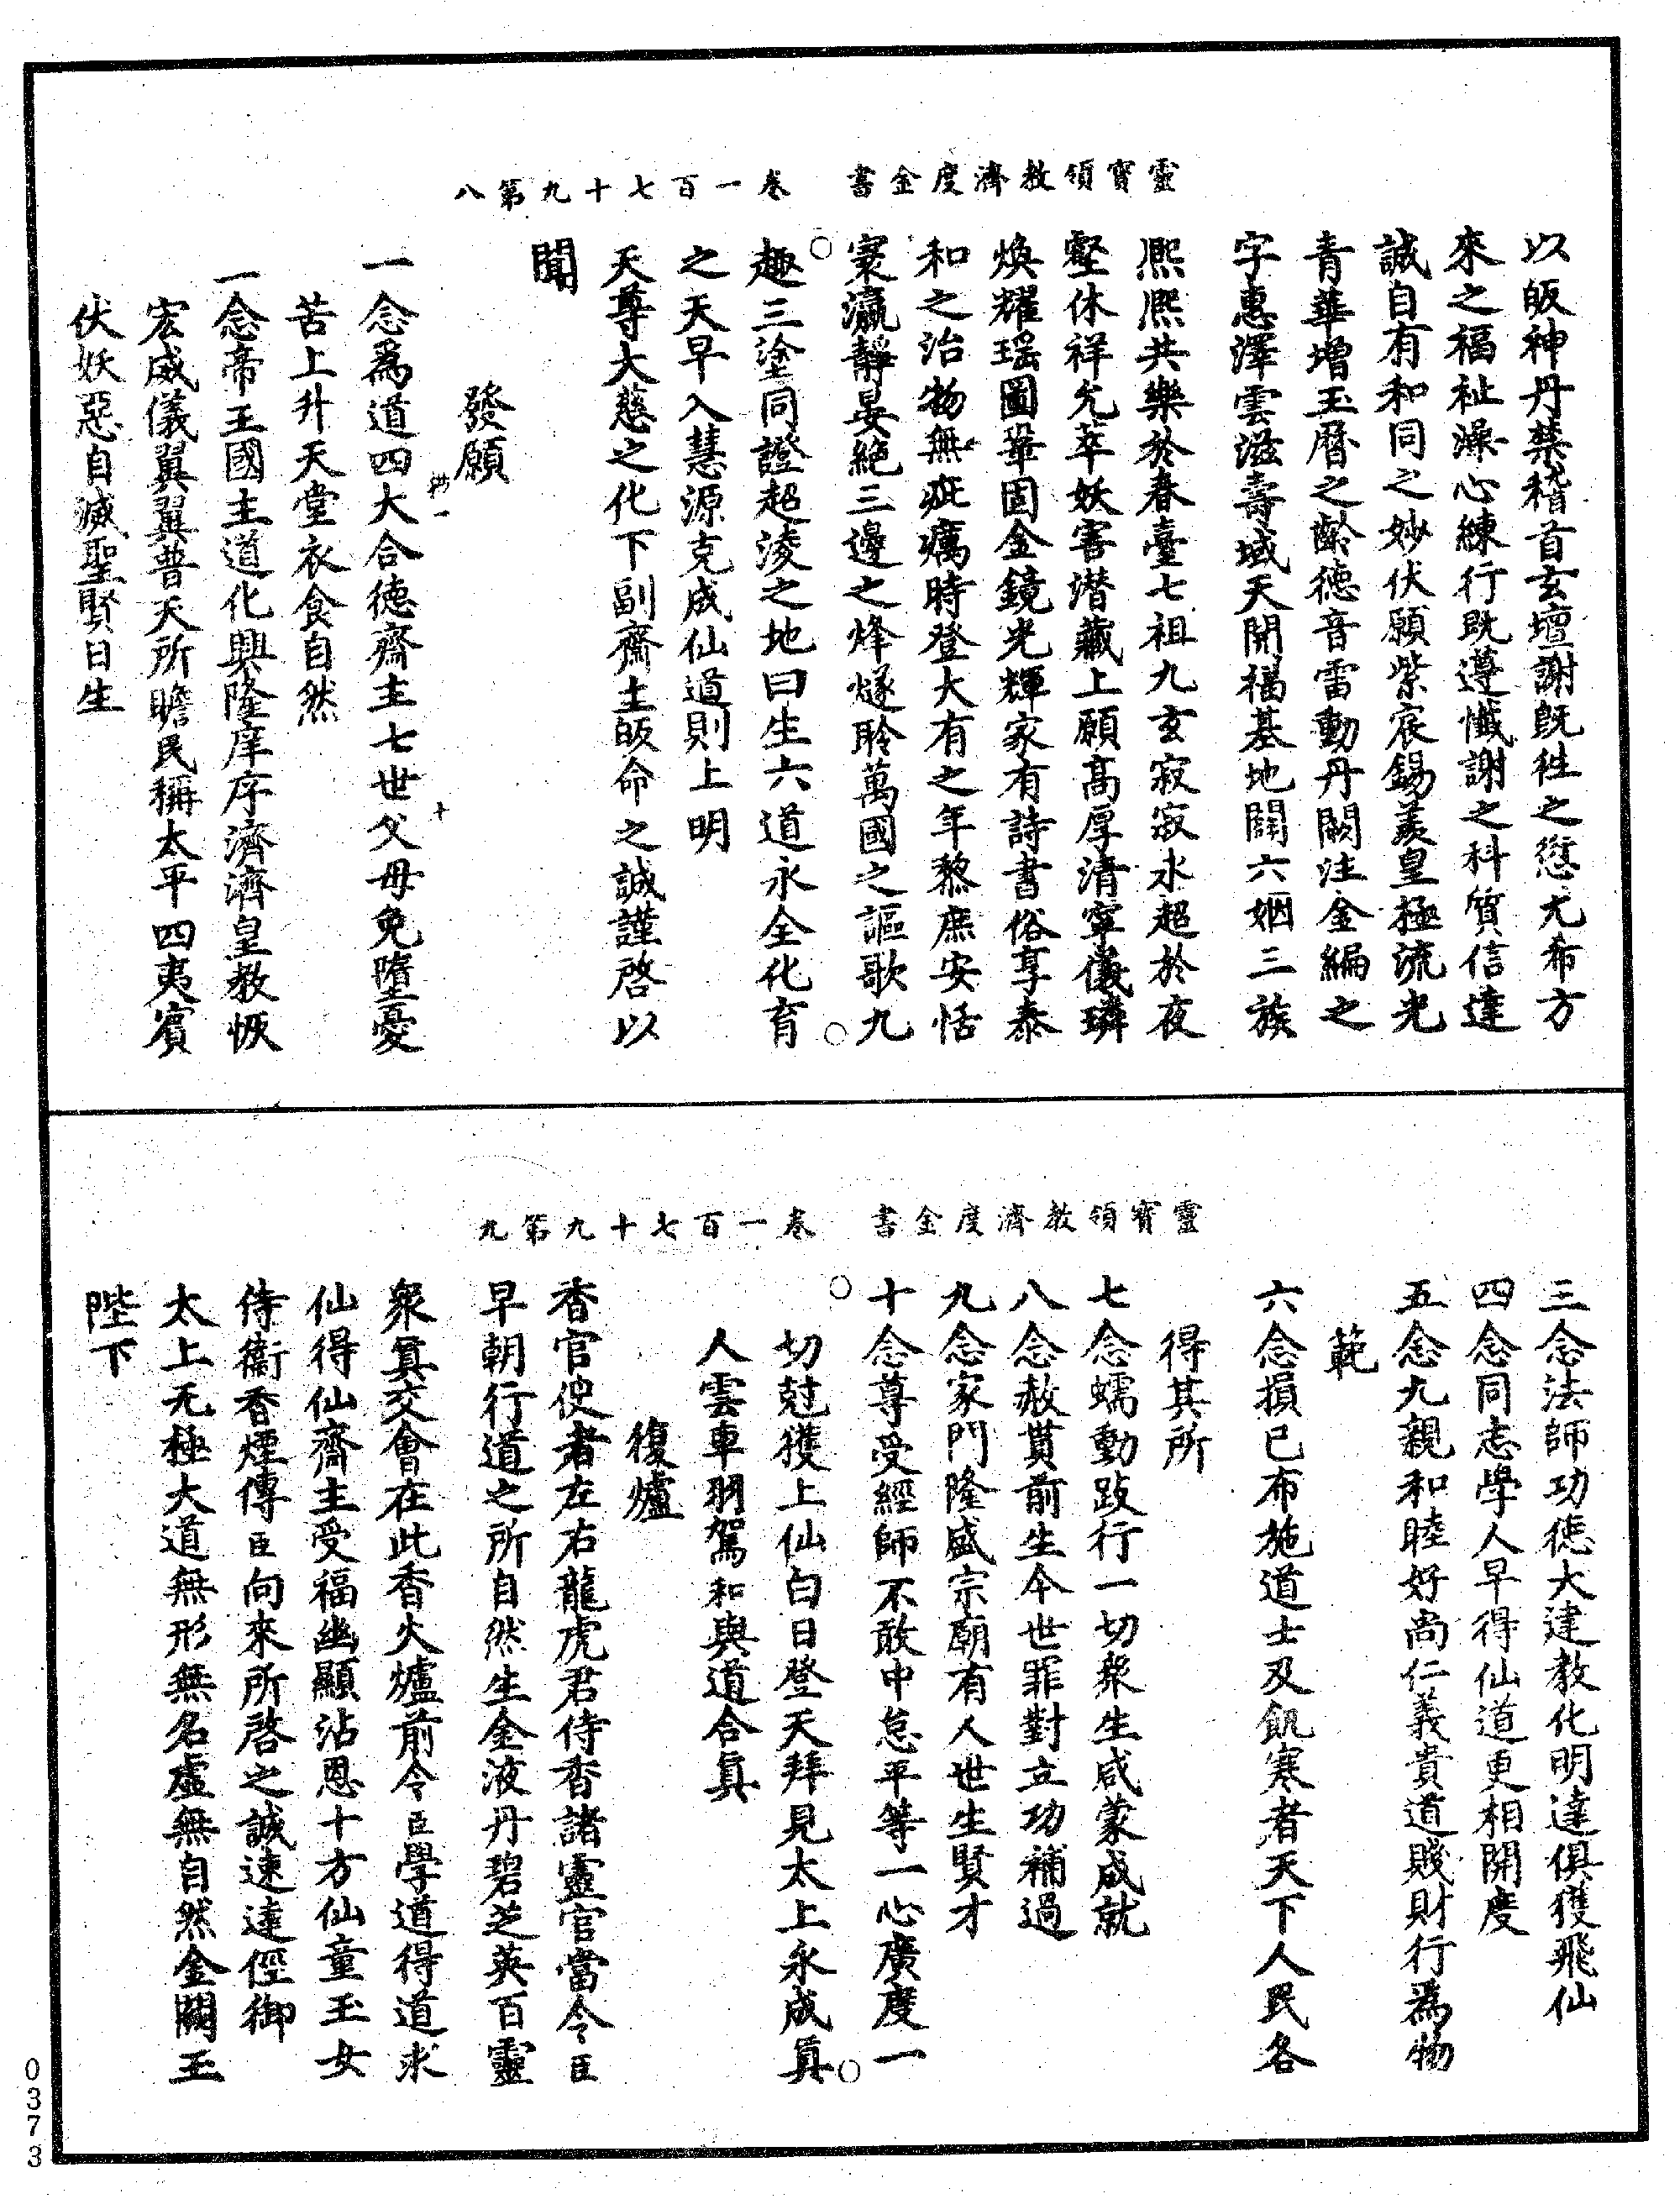 靈寶領教濟度金書　卷一百七十九第八
以皈神丹禁稽首玄壇謝旣徃之愆尤希方
來之福祉澡心練行旣遵懺謝之科質信達
誠自有和同之妙伏願紫宸錫羨皇極流光
青華增玉曆之齡德音雷動丹闕注金編之
字惠澤雲滋壽域天開福基地闢六姻三族
熙熙共樂於春臺七祖九玄寂寂永超於夜
壑休祥允萃妖害潛藏上願高厚清寧儀璘
煥耀瑶圖鞏固金鏡光輝家有詩書俗享泰
和之治物無疵癘時登大有之年黎庶安恬
寰瀛靜晏絕三邊之烽燧聆萬國之謳歌九
趣三塗同證超淩之地曰生六道永全化育
之天早入慧源克成仙道則上明
天尊大慈之化下副齋主皈命之誠謹啓以
聞
發願
一念爲道四大合德齋主七世父母免墮憂
苦上升天堂衣食自然
一念帝王國主道化興隆庠序濟濟皇教恢
宏威儀翼翼普天所瞻民稱太平四夷賓
伏妖惡自滅聖賢日生
十
靈寶領教濟度金書　卷一百七十九第九
三念法師功德大建教化明達俱獲飛仙
四念同志學人早得仙道更相開度
五念九親和睦好尚仁義貴道賤財行爲物
範
六念損已布施道士及飢寒者天下人民各
得其所
七念蠕動跂行一切衆生咸蒙成就
八念赦貰前生今世罪對立功補過
九念家門隆盛宗廟有人世生賢才
十念尊受經師不敢中怠平等一心廣度一
切愆獲上仙白日登天拜見太上永成眞
人雲車羽駕和與道合眞
復爐
香官使者左右龍虎君侍香諸靈官當令臣
早朝行道之所自然生金液丹碧芝英百靈
衆眞交會在此香火爐前令臣學道得道求
仙得仙齋主受福幽顯沾恩十方仙童玉女
侍衞香煙傳臣向來所啓之誠速達徑御
太上无極大道無形無名虛無自然金闕玉
陛下
0373